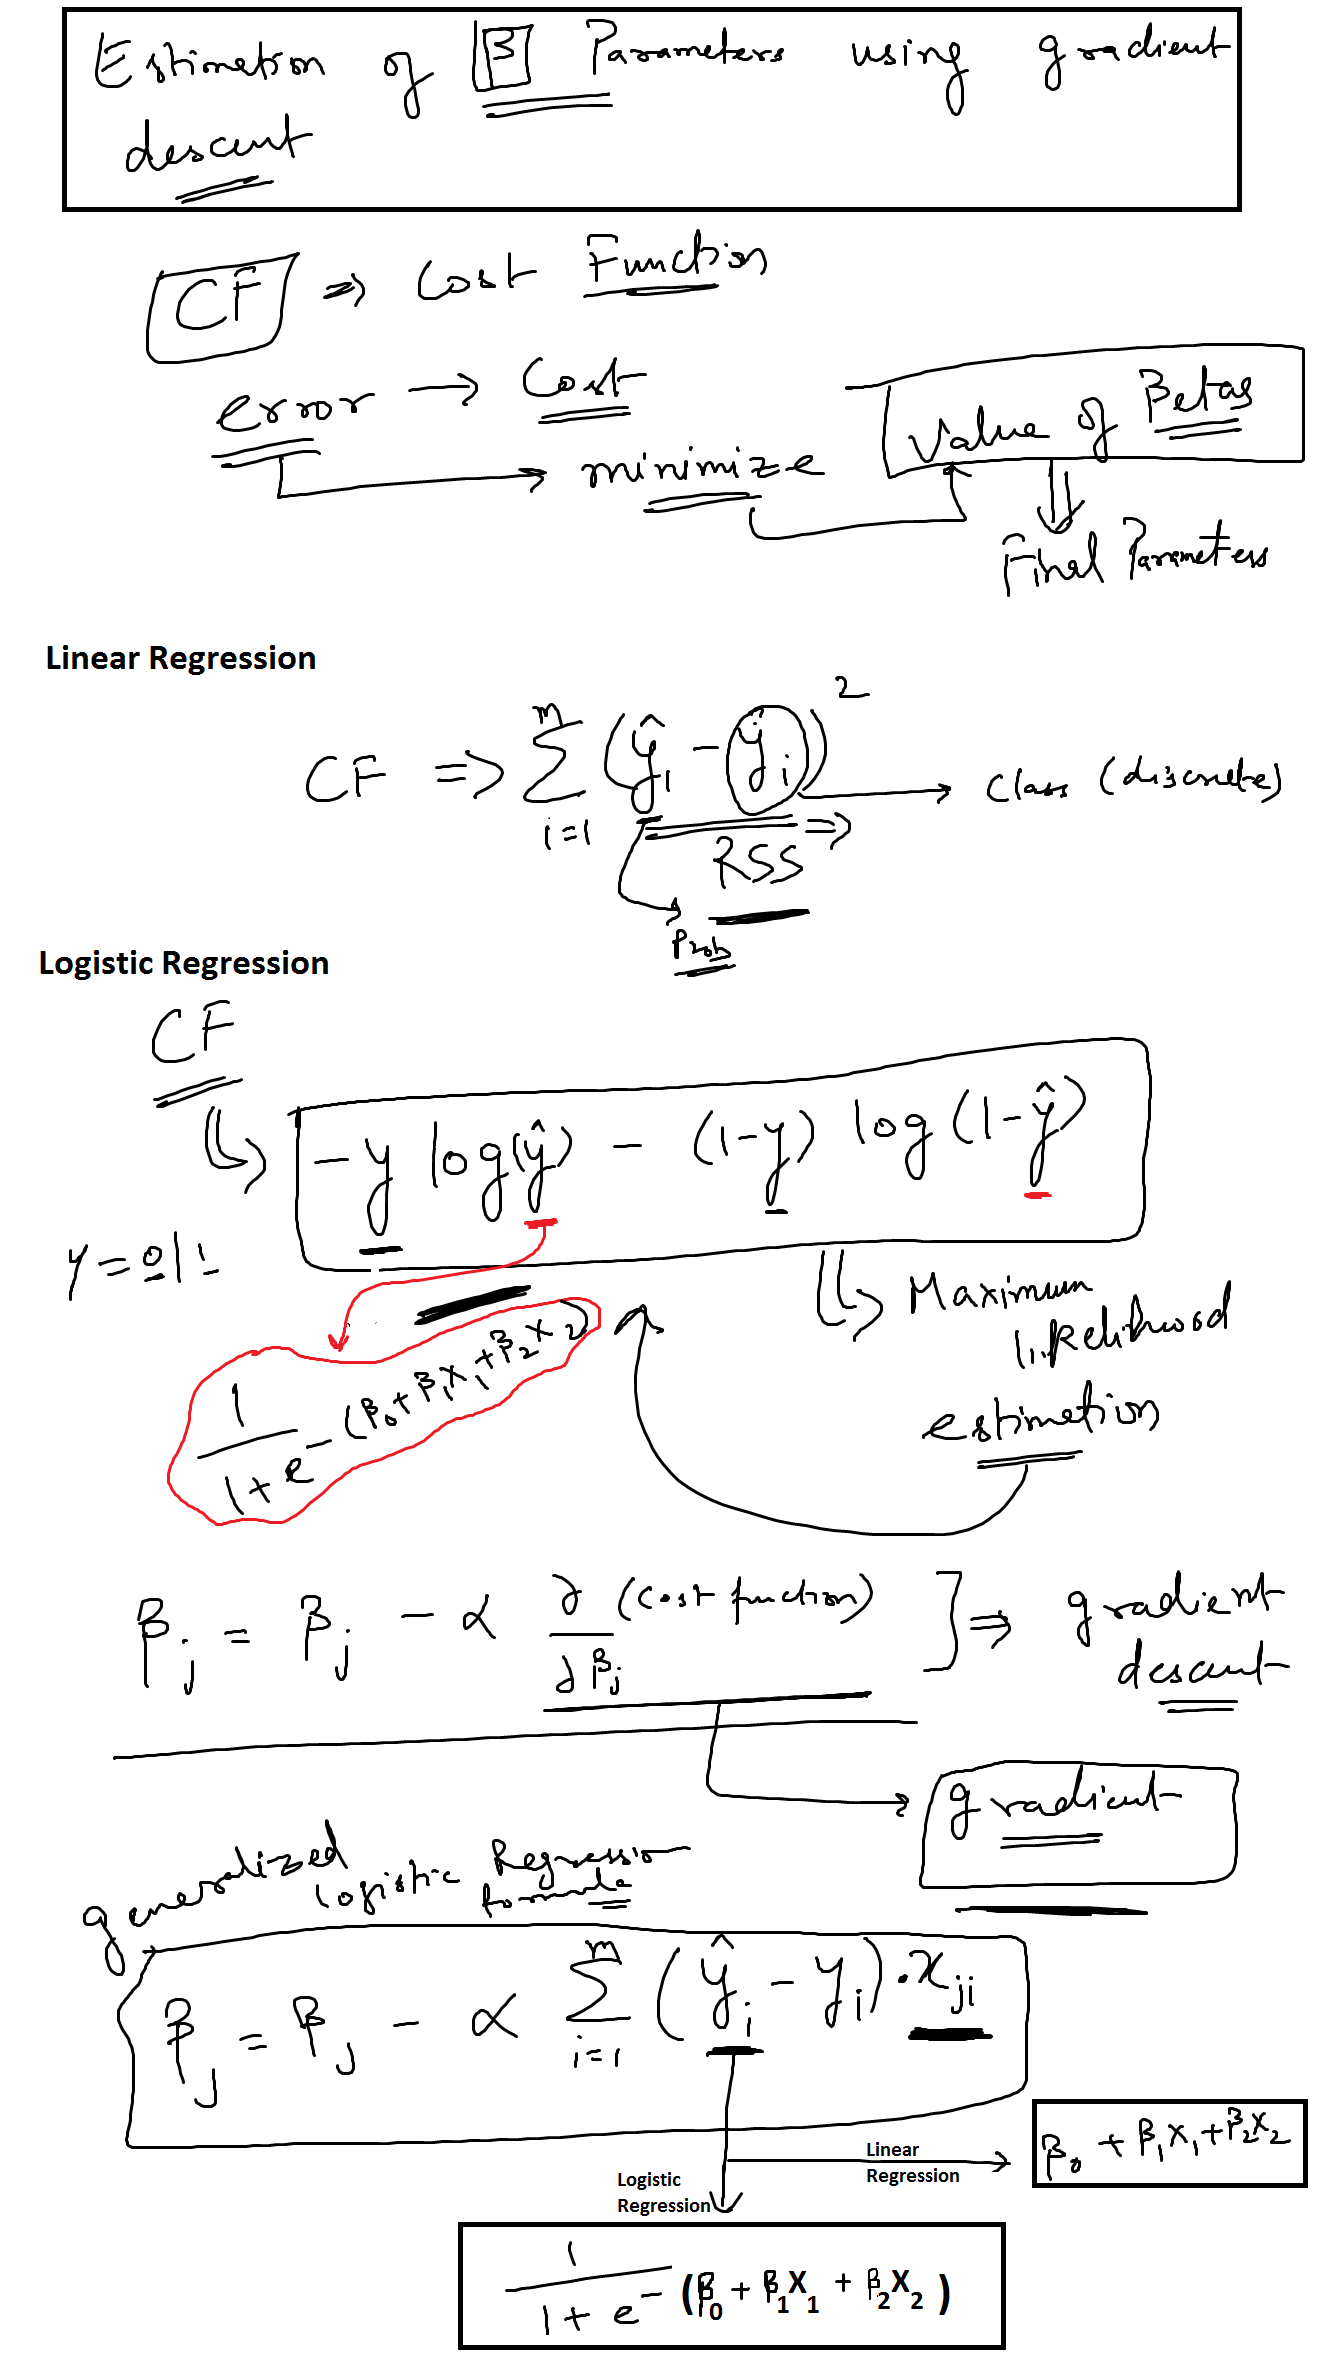 Estimation of β Parameters using gradient
descent
CF => Cost Function
error → Cost
Value of Betas
minimize
Final Parameters
Linear Regression
CF => Σ_{i=1}^{m} (ŷ_i - y_i)^2 → Class (discrete)
RSS =>
Prob
Logistic Regression
CF
- y log(ŷ) - (1-y) log(1-ŷ)
y = 0/1
Maximum
likelihood
estimation
1 / 1 + e^-(β_0 + β_1 X_1 + β_2 X_2)
β_j = β_j - α ∂/∂β_j (Cost function) ] => gradient
descent
gradient
generalized logistic Regression
formula
β_j = β_j - α Σ_{i=1}^{m} (ŷ_i - y_i) . x_{ji}
Linear
Regression
β_0 + β_1 X_1 + β_2 X_2
Logistic
Regression
1 / 1 + e^- (β_0 + β_1 X_1 + β_2 X_2)